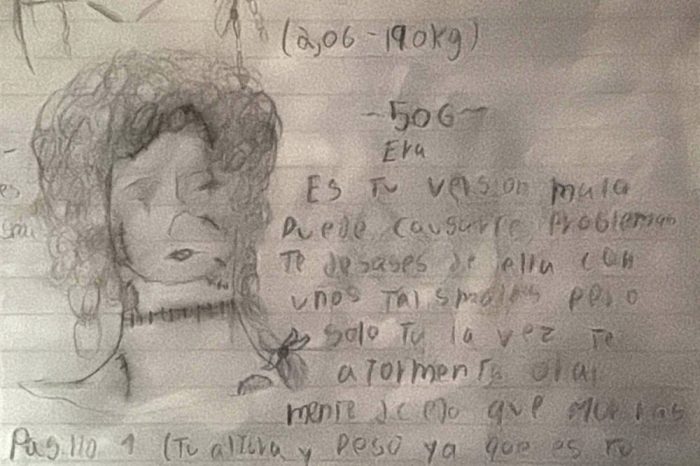 (2,06-190kg)
-506-
Eva
Es Tu version mala
puede causarte problemas
Te desases de ella con
unos Talismanes pero
solo Tu la vez Te
aTormenTa
menTe que
Pasillo 1 (Tu alTura y peso ya que es Tu